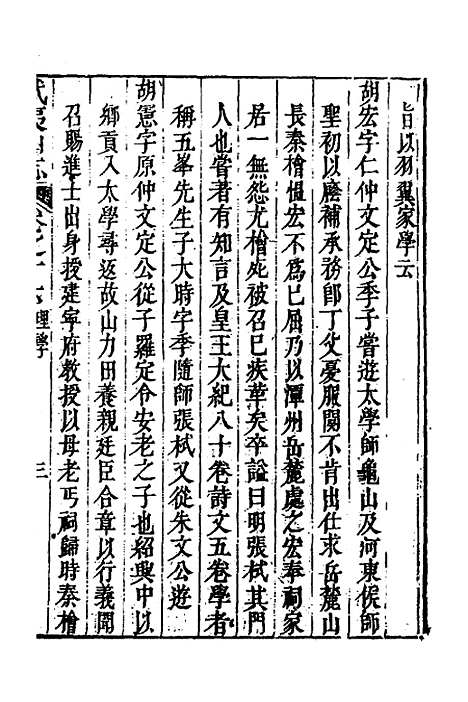 旨以羽翼家學云
胡宏字仁仲文定公季子嘗遊太學師龜山及河東侯師
聖初以廕補承務郎丁父憂服闋不肯出仕求岳麓山
長秦檜慍宏不為已屈乃以潭州岳麓處之宏奉祠家
居一無怨尤檜死被召已疾革矣卒諡曰明張栻其門
人也嘗著有知言及皇王大紀八十卷詩文五卷學者
稱五峯先生子大時字季隨師張栻又從朱文公遊
胡憲字原仲文定公從子羅定令安老之子也紹興中以
鄉貢入太學尋返故山力田養親廷臣合章以行義聞
召賜進士出身授建寧府教授以母老丐祠歸時秦檜
武夷山志 卷之十六 理學 三